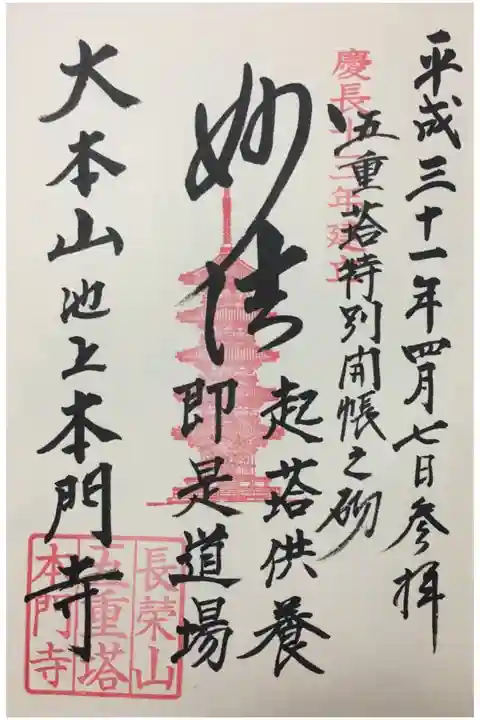 平成三十一年四月七日参拝
五重塔特別開帳之砌
慶長十二年建立
妙法
起塔供養
即是道場
大本山池上本門寺
長榮山
五重塔
本門寺